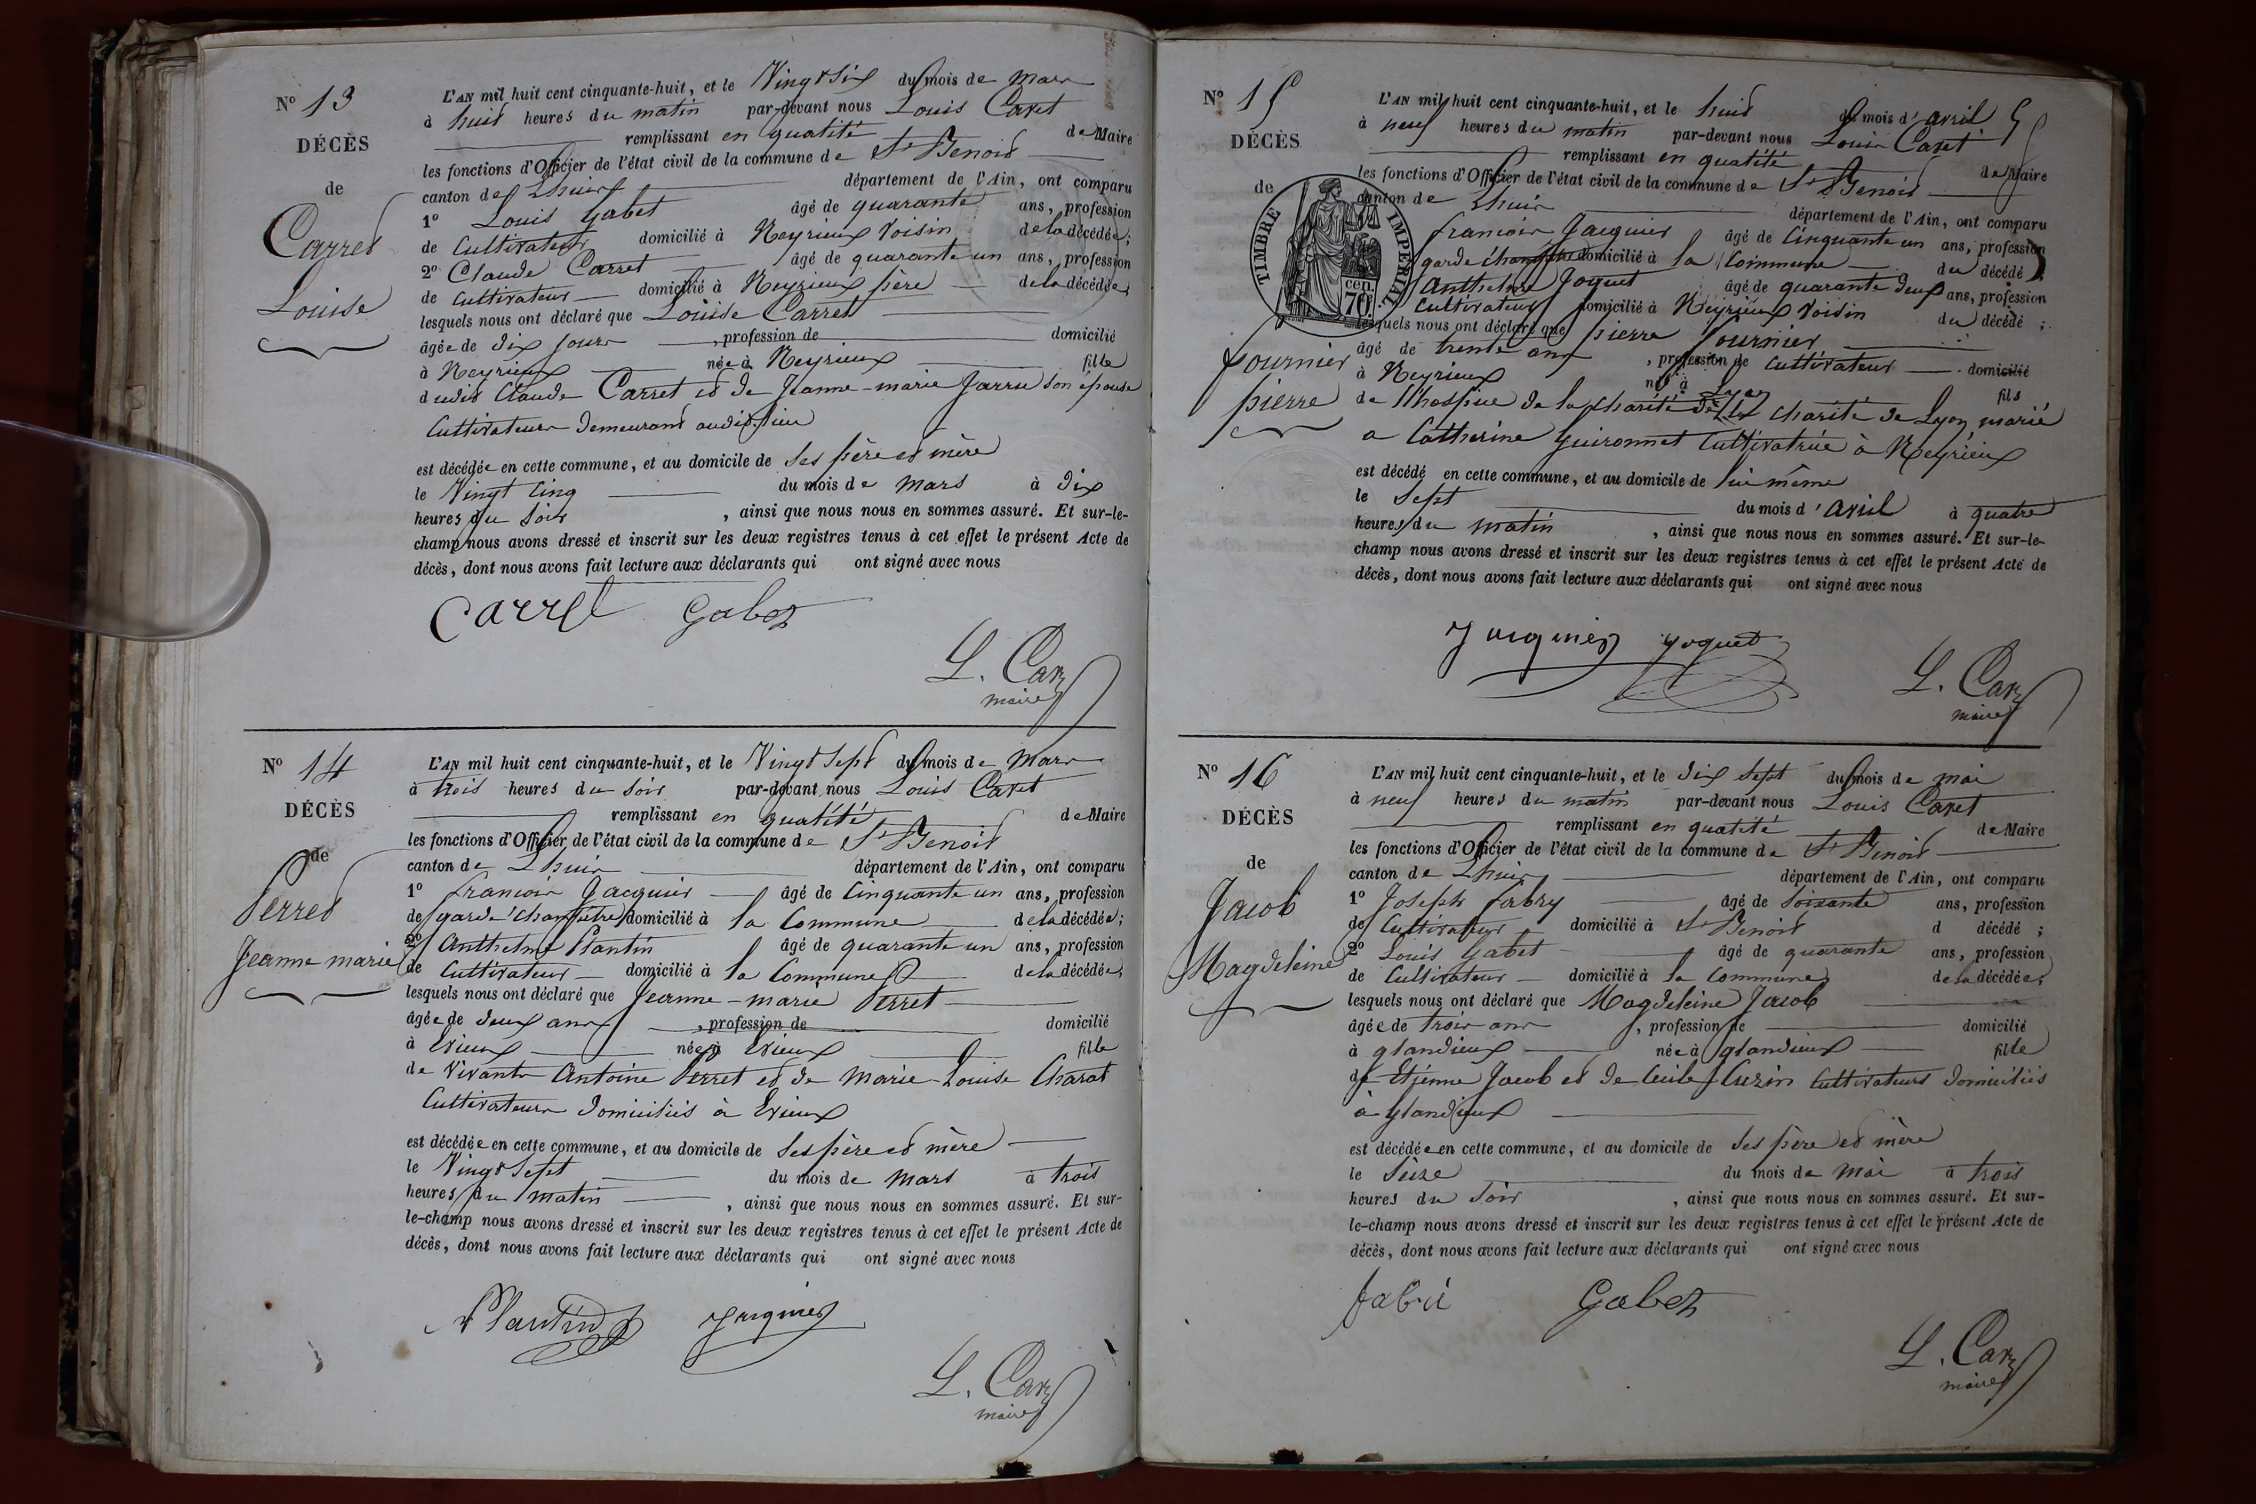 N° 13
DÉCÈS
de
Carret
Louise
L'AN mil huit cent cinquante-huit, et le Vingt Six du mois de Mars
à huit heures du matin par-devant nous Louis Caret
remplissant en qualité de Maire
les fonctions d'Officier de l'état civil de la commune de St Benoit
canton de Lhuis département de l'Ain, ont comparu
1° Louis Gabet âgé de quarante ans, profession
de Cultivateur domicilié à Neyrieux Voisin de la décédée;
2° Claude Carret âgé de quarante un ans, profession
de Cultivateur domicilié à Neyrieux père de la décédée,
lesquels nous ont déclaré que Louise Carret
âgée de dix jours , profession de domicilié
à Neyrieux née à Neyrieux fille
dudit Claude Carret et de Jeanne-marie Jarru son épouse
Cultivateurs demeurant audit lieu
est décédée en cette commune, et au domicile de ses père et mère
le Vingt cinq du mois de Mars à dix
heures du Soir , ainsi que nous nous en sommes assuré. Et sur-le-
champ nous avons dressé et inscrit sur les deux registres tenus à cet effet le présent Acte de
décès, dont nous avons fait lecture aux déclarants qui ont signé avec nous
Carret Gabet
L. Car
maire
N° 14
DÉCÈS
de
Perret
Jeanne marie
L'AN mil huit cent cinquante-huit, et le Vingt Sept du mois de Mars
à trois heures du Soir par-devant nous Louis Caret
remplissant en qualité de Maire
les fonctions d'Officier de l'état civil de la commune de St Benoit
canton de Lhuis département de l'Ain, ont comparu
1° francois Jacquier âgé de Cinquante un ans, profession
de garde champêtre domicilié à la Commune de la décédée;
2° Anthelme Plantin âgé de quarante un ans, profession
de Cultivateur domicilié à la Commune de la décédée,
lesquels nous ont déclaré que Jeanne-marie Perret
âgée de deux ans , profession de domicilié
à Evieux née à Evieux fille
de vivants Antoine Perret et de Marie-Louise Charat
Cultivateurs domiciliés à Evieux
est décédée en cette commune, et au domicile de Ses père et mère
le Vingt Sept du mois de Mars à trois
heures du matin , ainsi que nous nous en sommes assuré. Et sur-
le-champ nous avons dressé et inscrit sur les deux registres tenus à cet effet le présent Acte de
décès, dont nous avons fait lecture aux déclarants qui ont signé avec nous
Plantin Jacquier
L. Car
maire
N° 15
DÉCÈS
de
TIMBRE IMPÉRIAL
70 cen.
fournier
pierre
L'AN mil huit cent cinquante-huit, et le huit du mois d'avril
à neuf heures du matin par-devant nous Louis Caret
remplissant en qualité de Maire
les fonctions d'Officier de l'état civil de la commune de St Benoit
canton de Lhuis département de l'Ain, ont comparu
francois Jacquier âgé de Cinquante un ans, profession
garde champêtre domicilié à la Commune du décédé;
Anthelme Joguet âgé de quarante deux ans, profession
Cultivateur domicilié à Neyrieux Voisin du décédé;
lesquels nous ont déclaré que pierre fournier
âgé de trente ans , profession de Cultivateur domicilié
à Neyrieux né à Lyon fils
de l'hospice de la charité de la charité de Lyon marié
a Catherine Guironnet Cultivatrice à Neyrieux
est décédé en cette commune, et au domicile de lui même
le Sept du mois d'avril à quatre
heures du matin , ainsi que nous nous en sommes assuré. Et sur-le-
champ nous avons dressé et inscrit sur les deux registres tenus à cet effet le présent Acte de
décès, dont nous avons fait lecture aux déclarants qui ont signé avec nous
Jacquier Joguet
L. Car
maire
N° 16
DÉCÈS
de
Jacob
Magdeleine
L'AN mil huit cent cinquante-huit, et le dix Sept du mois de mai
à neuf heures du matin par-devant nous Louis Caret
remplissant en qualité de Maire
les fonctions d'Officier de l'état civil de la commune de St Benoit
canton de Lhuis département de l'Ain, ont comparu
1° Joseph fabry âgé de Soixante ans, profession
de Cultivateur domicilié à St Benoit d décédé ;
2° Louis Gabet âgé de quarante ans, profession
de Cultivateur domicilié à la Commune de la décédée,
lesquels nous ont déclaré que Magdeleine Jacob
âgée de trois ans , profession de domicilié
à glandieux née à glandieux fille
de Etienne Jacob et de Cecile Cuzin Cultivateurs domiciliés
à glandieux
est décédée en cette commune, et au domicile de ses père et mère
le Seize du mois de Mai à trois
heures du Soir , ainsi que nous nous en sommes assuré. Et sur-
le-champ nous avons dressé et inscrit sur les deux registres tenus à cet effet le présent Acte de
décès, dont nous avons fait lecture aux déclarants qui ont signé avec nous
fabri Gabet
L. Car
maire